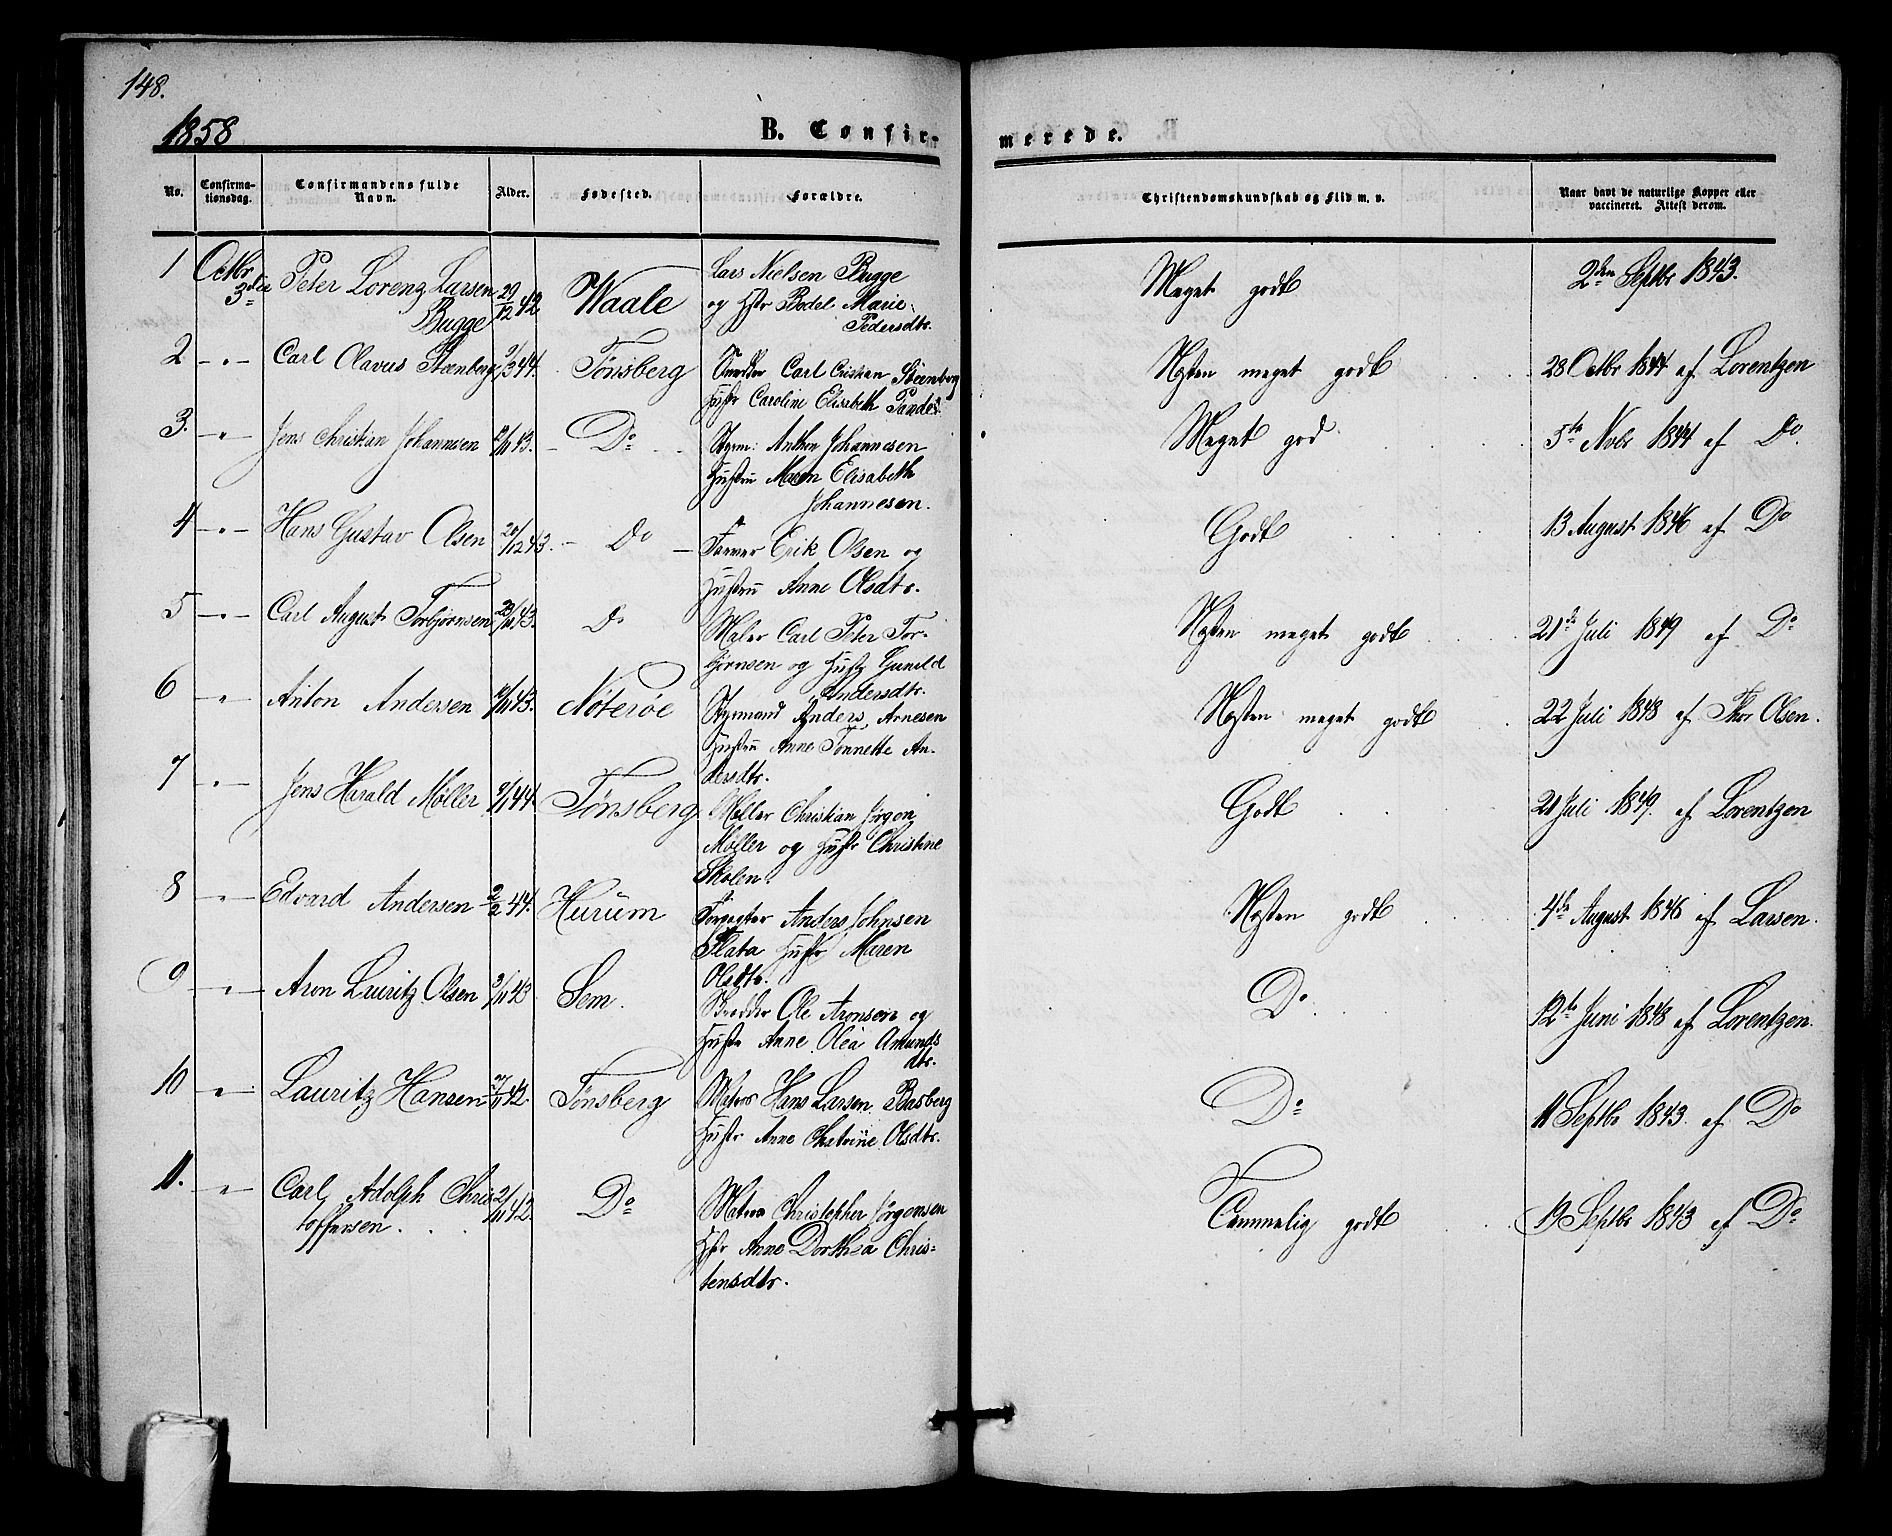 148.
1858
B. Confir-
merede.
No.
Confirma-
tionsdag.
Confirmandens fulde
Navn.
Alder.
Fødested.
Forældre.
Christendomskundskab og Flid m. v.
Naar havt de naturlige Kopper eller
vaccineret. Attest derom.
1 Octbr Peter Lorenz Larsen 29/12 42 Waale Lars Nielsen Bugge Meget godt 2den Septbr 1843.
3die Bugge og Hstr Bodel Marie
Pedersdtr.
2 -„- Carl Olavus Steenberg 9/3 44. Tønsberg Carl Cristian Steenberg Næsten meget godt 28 Octbr 1844 af Lorentzen
Hustr Caroline Elisabeth
3. -„- Jens Christian Johannesen /11 43. Do Styrm: Anthon Johannesen Meget god 5te Novbr 1844 af Do.
Hustru Maren Elisabeth
Johannesen.
4 -„- Hans Gustav Olsen 20/12 43. Do Erik Olsen og Godt 13 August 1846 af Do
Hustru Anne Olsdtr.
5 -„- Carl August Torbjørnsen 23/11 43. Do Maler Carl Peter Tor- Næsten meget godt 21de Juli 1849 af Do
bjørnsen og Hustr Gunild
Andersdtr.
6 -„- Anton Andersen /11 43. Nøterøe Styrmand Anders Arnesen Næsten meget godt 22 Juli 1848 af Thor Olsen.
Hustru Anne Tonnette An-
dersdtr.
7 „ Jens Harald Møller 9/1 44. Tønsberg Møller Christian Jørgen Godt 21 Juli 1849. af Lorentzen
Møller og Hustr Christine
Skolen.
8 -„- Edvard Andersen 2/2 44. Hurum Anders Johnsen Næsten godt 4de August 1846 af Larsen.
Flata Hustr Maren
Olsdtr.
9 -„- Aron Lauritz Olsen 3/11 43 Sem. Skredder Ole Aronsen og Do 12te Juni 1848 af Lorentzen.
Hustr Anne Olea Amunds
dtr.
10 „ Lauritz Hansen 42. Tønsberg Matros Hans Larsen Basberg Do 11 Septbr 1843. af Do
Hustr Anne Chatrine Olsdtr.
11. „ Carl Adolph Chris 21/11 42. Do Matros Christopher Jørgensen Temmelig godt 19 Septbr 1843 af Do
toffersen. Hstr Anne Dorthea Chris-
tensdtr.